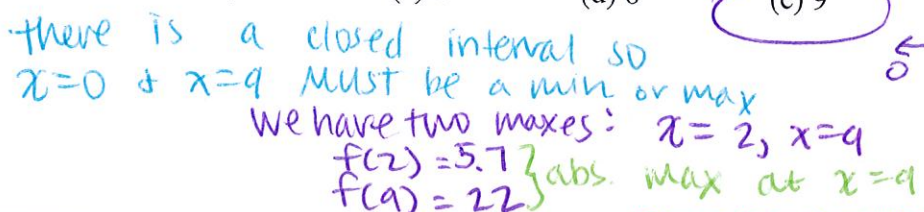 (d) 6 (e) 9
there is a closed interval so
x=0 & x=9 must be a min or max
we have two maxes: x=2, x=9
f(2)=5.7 } abs. max at x=9
f(9)=22